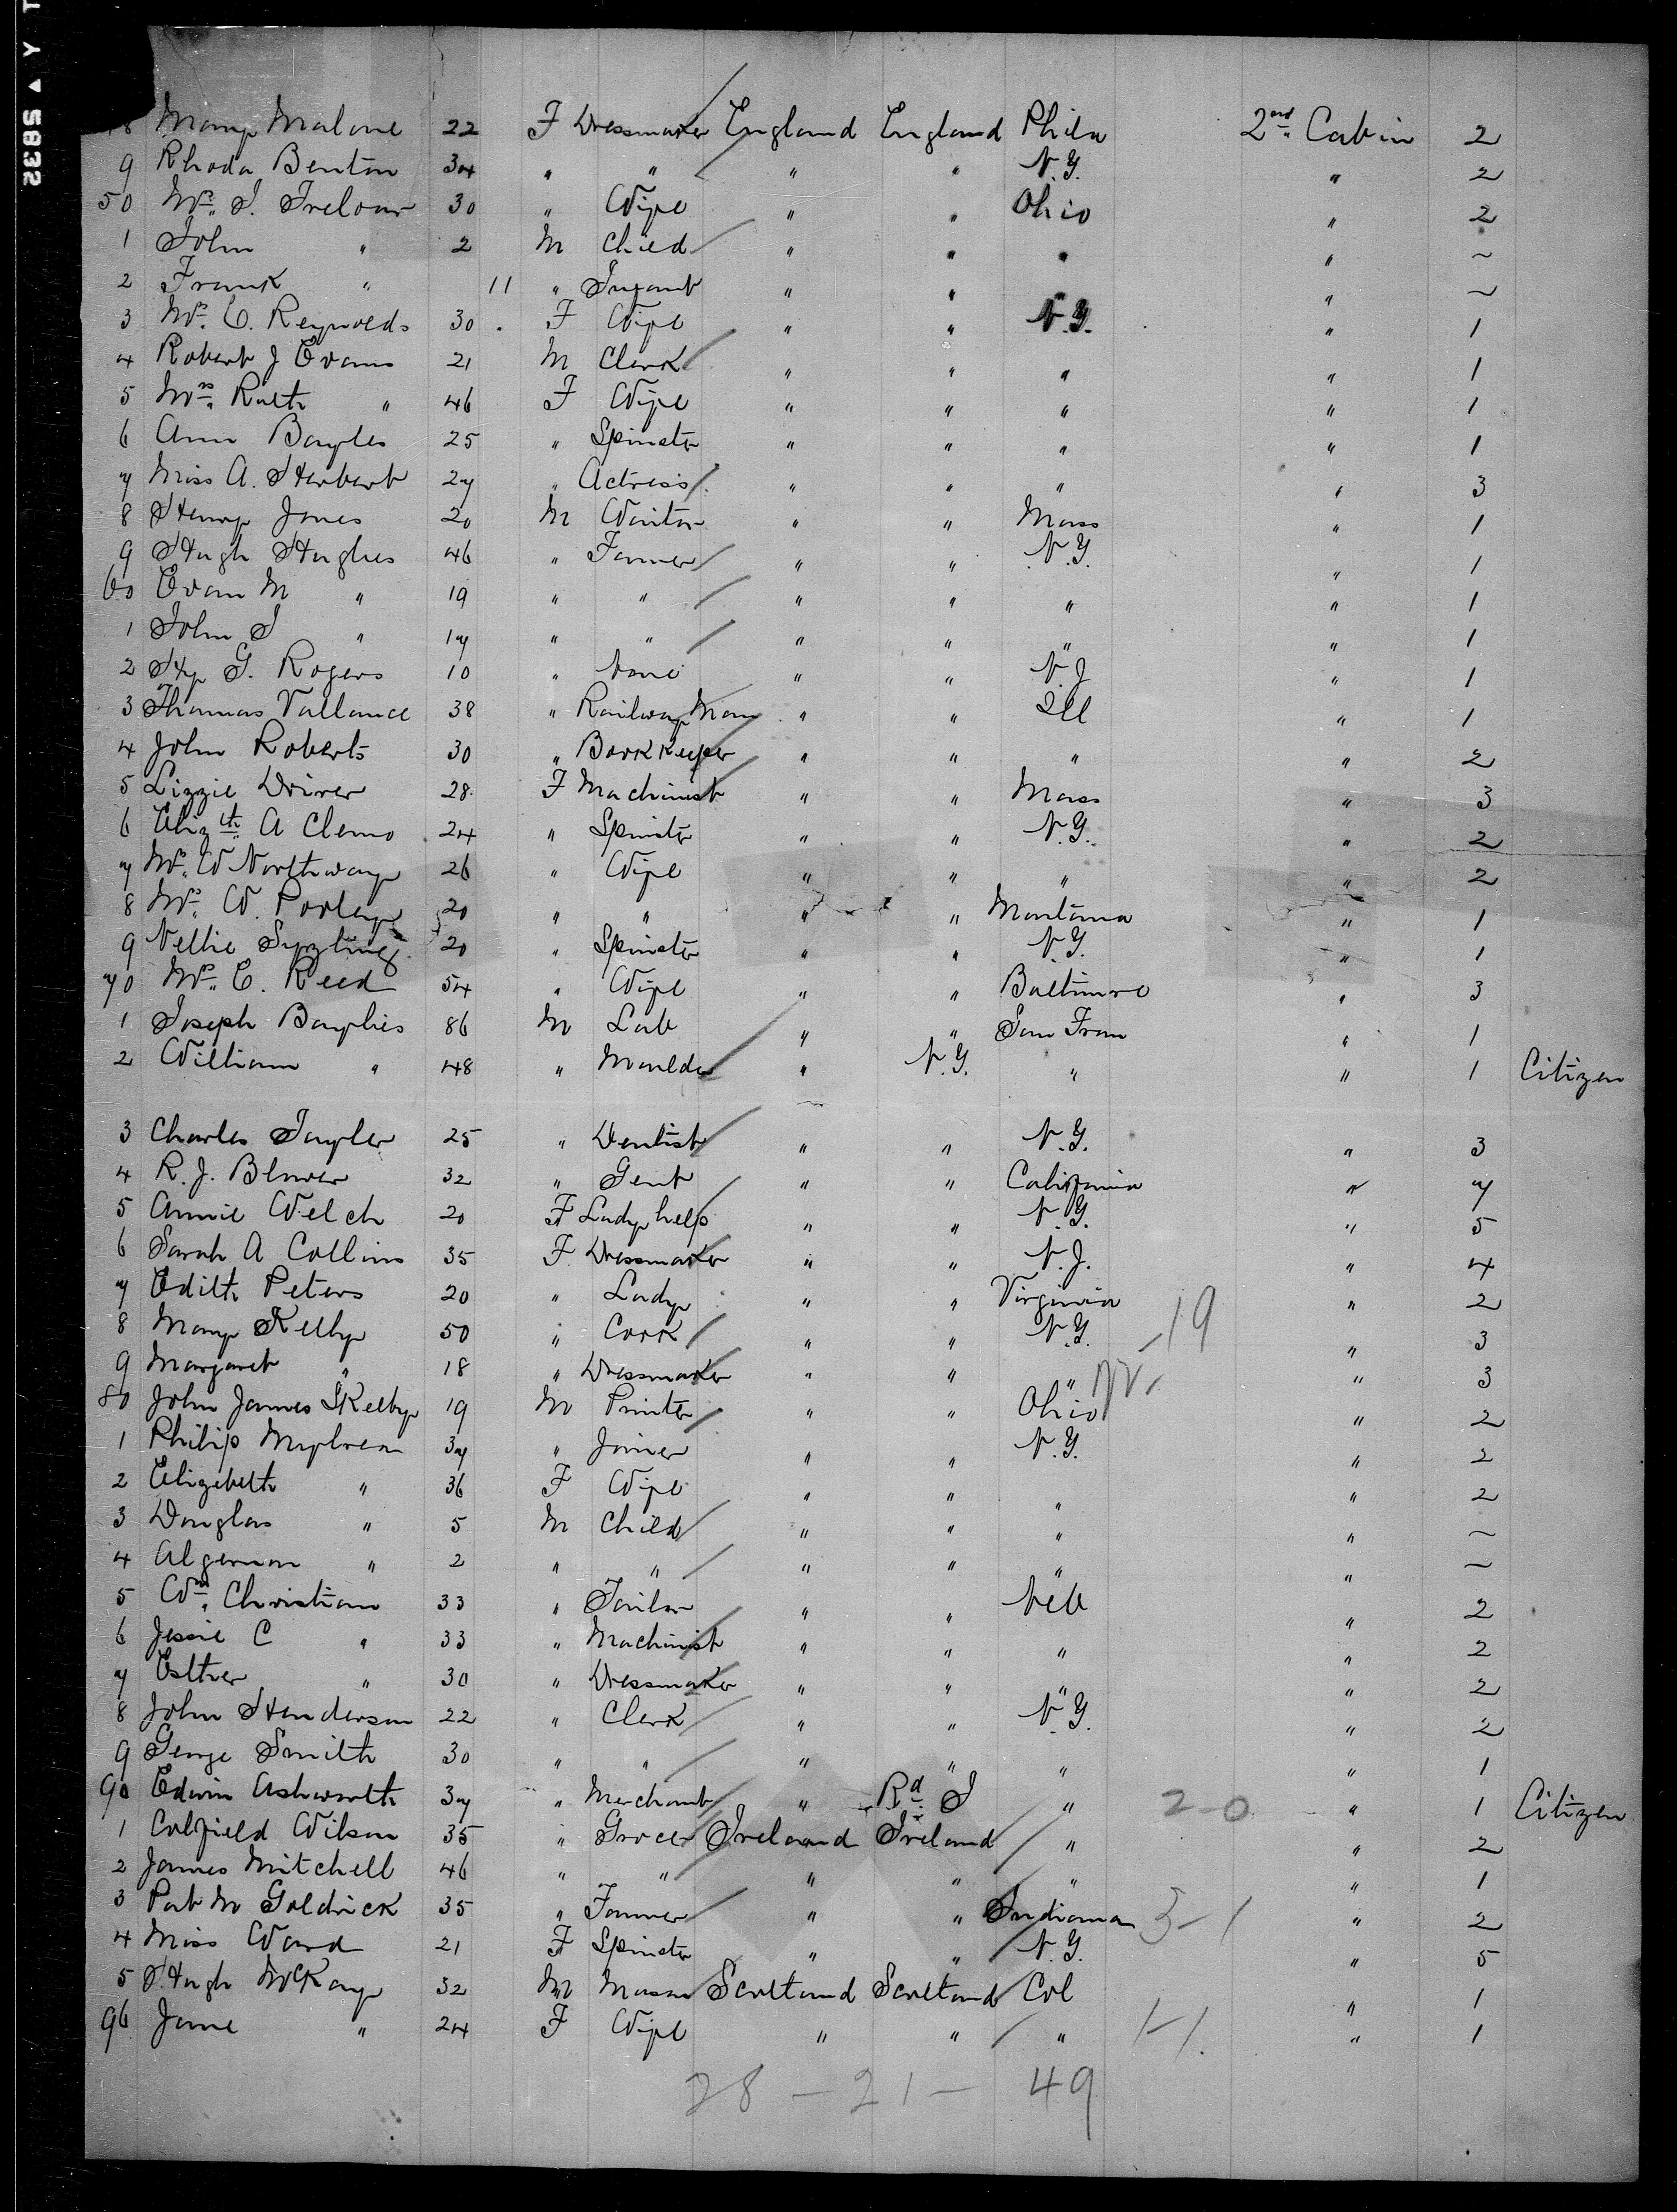 48 Mary Malone 22 F Dressmaker England England Phila 2nd Cabin 2
9 Rhoda Benton 34 " " " " N.Y. " 2
50 Mrs. J. Treloar 30 " Wife " " Ohio " 2
1 John " 2 M Child " " " " ~
2 Frank " 11 " Infant " " " ~
3 Mrs. C. Reynolds 30 F Wife " " N.Y. " 1
4 Robert J Evans 21 M Clerk " " " " 1
5 Mrs. Ruth " 46 F Wife " " " " 1
6 Ann Bayles 25 " Spinster " " " " 1
7 Miss A. Herbert 27 " Actress " " " " 3
8 Henry Jones 20 M Waiter " " Mass " 1
9 Hugh Hughes 46 " Farmer " " N.Y. " 1
60 Evan M " 19 " " " " " " 1
1 John J " 17 " " " " " " 1
2 Hy G. Rogers 10 " None " " N.J " 1
3 Thomas Vallance 38 " Railway Man " " Ill " 1
4 John Roberts 30 " Bookkeeper " " " " 2
5 Lizzie Driver 28 F Machinist " " Mass " 3
6 Elizth. A Clemo 24 " Spinster " " N.Y. " 2
7 Mrs. W Northway 26 " Wife " " " " 2
8 Mrs. W. 20 " " " " Montana " 1
9 Nellie 20 " Spinster " " N.Y. " 1
70 Mrs. E. Reed 54 " Wife " " Baltimore " 3
1 Joseph Baylies 86 M Lab " " San Fran " 1
2 William " 48 " Moulder " N.Y. " " 1 Citizen
3 Charles Tayler 25 " Dentist " " N.Y. " 3
4 R. J. Blower 32 " Gent " " California " 7
5 Annie Welch 20 F Lady help " " N.Y. " 5
6 Sarah A Collins 35 F Dressmaker " " N.J. " 4
7 Edith Peters 20 " Lady " " Virginia " 2
8 Mary Skelly 50 " Cook " " N.Y. 19 " 3
9 Margaret " 18 " Dressmaker " " " " 3
80 John James Skelly 19 M Printer " " Ohio " 2
1 Philip Mylrea 37 " Joiner " " N.Y. " 2
2 Elizabeth " 36 F Wife " " " " 2
3 Douglas " 5 M Child " " " " ~
4 Algernon " 2 " " " " " " ~
5 Wm. Christian 33 " Tailor " " Neb " 2
6 Jessie C " 33 " Machinist " " " " 2
7 Esther " 30 " Dressmaker " " " " 2
8 John Henderson 22 " Clerk " " N.Y. " 2
9 George Smith 30 " " " " " " 1
90 Edwin Ashworth 37 " Merchant " Rd. I " 2-0 " 1 Citizen
1 Colfield Wilson 35 " Grocer Ireland Ireland " " 2
2 James Mitchell 46 " " " " " " 1
3 Pat Mc Goldrick 35 " Farmer " " Indiana 3-1 " 2
4 Miss Ward 21 F Spinster " " N.Y. " 5
5 Hugh McKay 32 M Mason Scotland Scotland Col " 1
96 Jane " 24 F Wife " " " 1-1. " 1
28 - 21 - 49